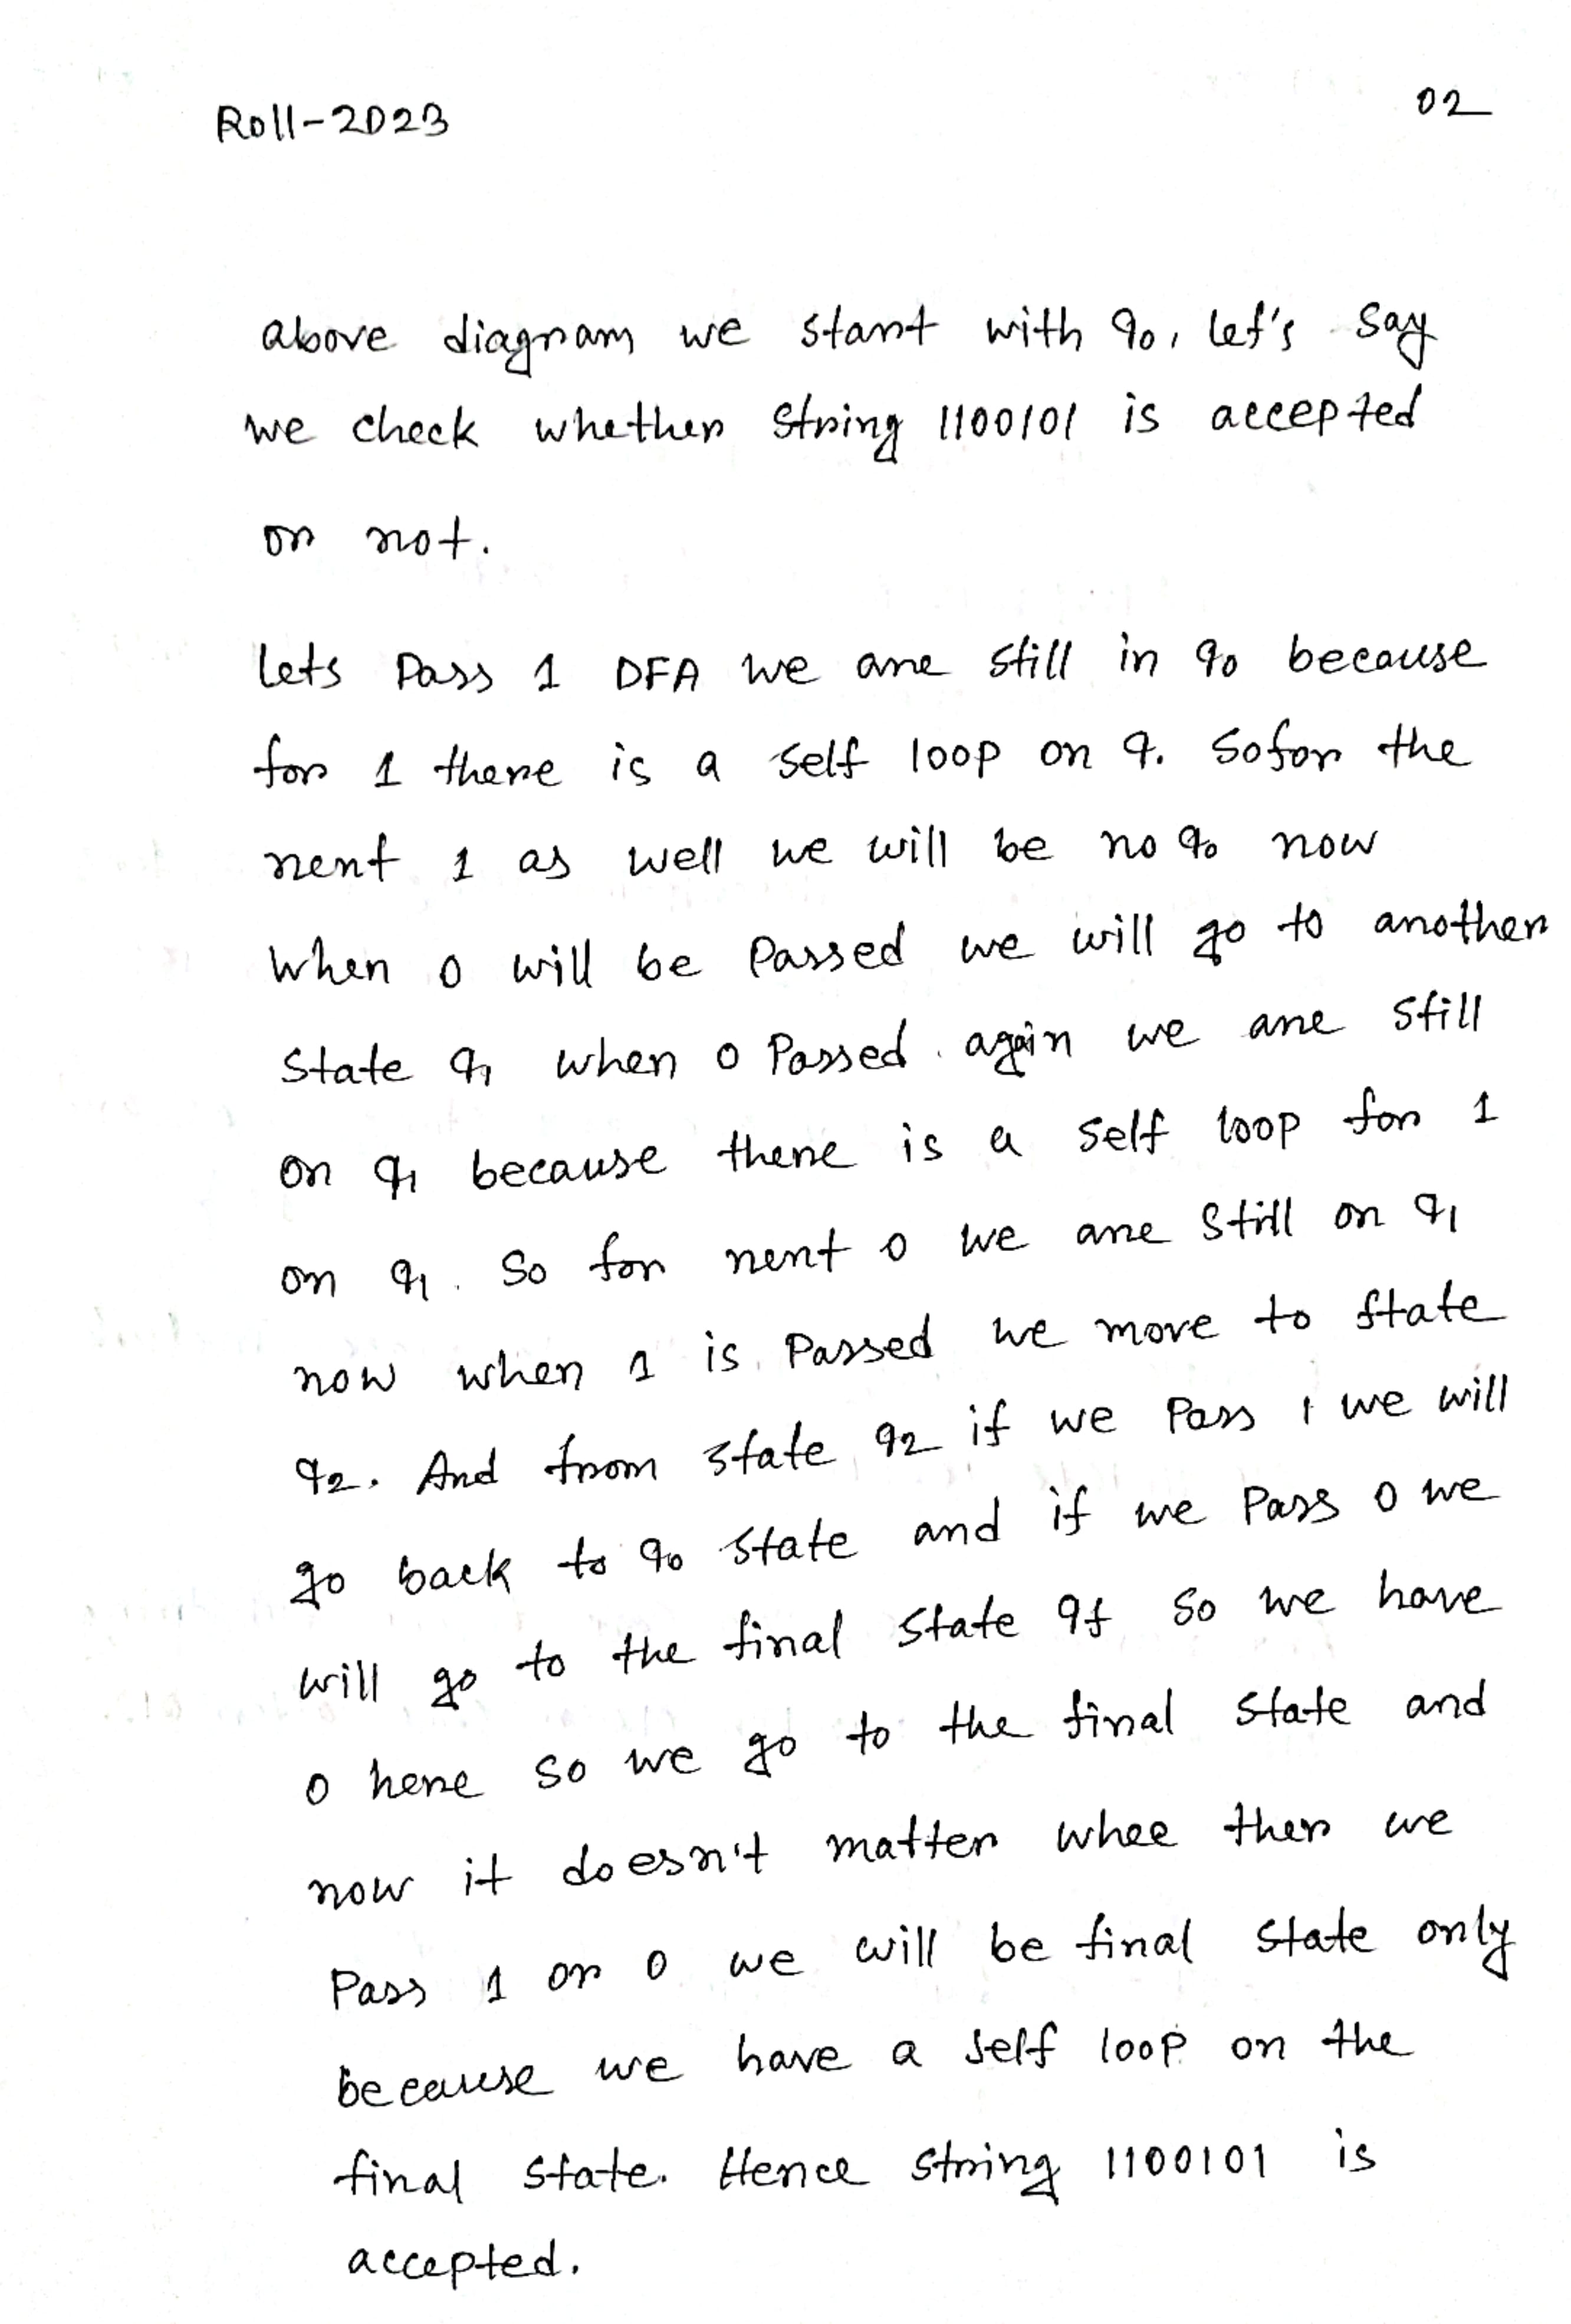 Roll-2023
02
above diagram we start with q0, let's say
we check whether string 1100101 is accepted
or not.
Lets Pass 1 DFA we are still in q0 because
for 1 there is a self loop on q. Sofor the
nent 1 as well we will be no q0 now
When 0 will be Passed we will go to another
State q1 when 0 Passed again we are still
on q1 because there is a self loop for 1
on q1. So for nent 0 we are still on q1
now when 1 is Passed we move to state
q2. And from state q2 if we Pass 1 we will
go back to q0 state and if we Pass 0 we
will go to the final state qf so we have
0 here so we go to the final state and
now it doesn't matter whee ther we
Pass 1 or 0 we will be final state only
because we have a self loop on the
final state. Hence string 1100101 is
accepted.